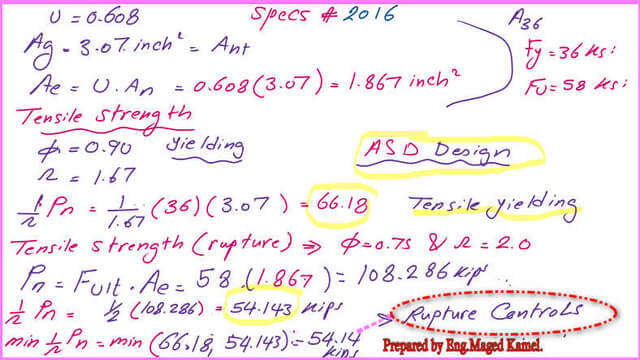 U = 0.608 Specs # 2016 A36
Ag = 3.07 inch² = Ant Fy = 36 Ksi
Ae = U. An = 0.608 (3.07) = 1.867 inch² FU = 58 Ksi
Tensile Strength
φ = 0.90 yielding ASD Design
Ω = 1.67
1/Ω Pn = 1/1.67 (36) (3.07) = 66.18 Tensile yielding
Tensile Strength (rupture) ⇒ φ = 0.75 & Ω = 2.0
Pn = Fult . Ae = 58 . (1.867) = 108.286 Kips
1/Ω Pn = 1/2 (108.286) = 54.143 Kips ⇒ Rupture Controls
min 1/Ω Pn = min (66.18, 54.143) = 54.14 Kips
Prepared by Eng.Maged Kamel.